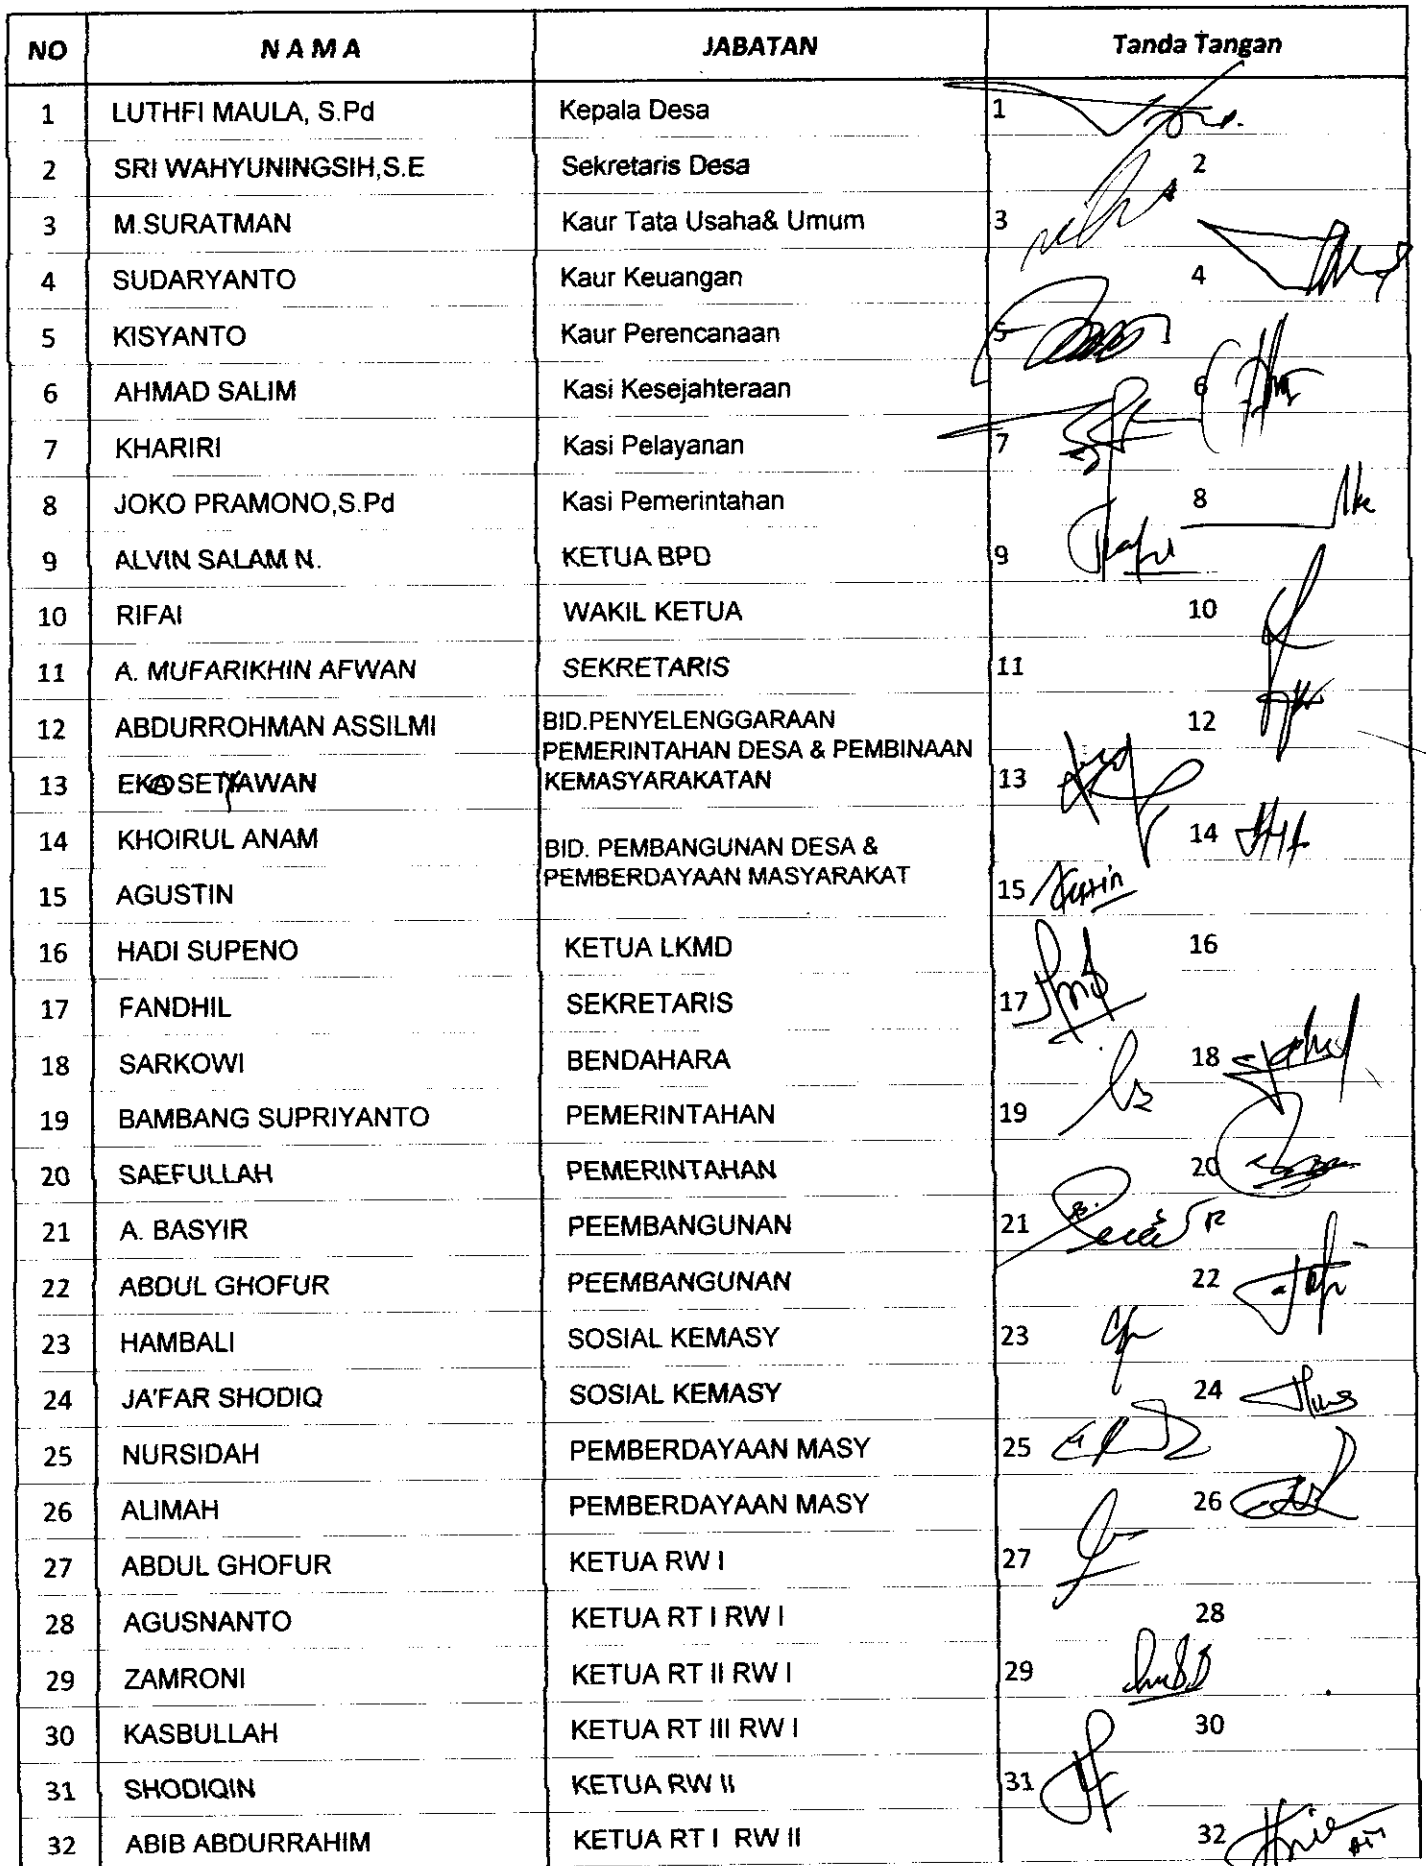 NO N A M A JABATAN Tanda Tangan
1 LUTHFI MAULA, S.Pd Kepala Desa 1
2 SRI WAHYUNINGSIH,S.E Sekretaris Desa 2
3 M.SURATMAN Kaur Tata Usaha& Umum 3
4 SUDARYANTO Kaur Keuangan 4
5 KISYANTO Kaur Perencanaan 5
6 AHMAD SALIM Kasi Kesejahteraan 6
7 KHARIRI Kasi Pelayanan 7
8 JOKO PRAMONO,S.Pd Kasi Pemerintahan 8
9 ALVIN SALAM N. KETUA BPD 9
10 RIFAI WAKIL KETUA 10
11 A. MUFARIKHIN AFWAN SEKRETARIS 11
12 ABDURROHMAN ASSILMI BID.PENYELENGGARAAN 12
PEMERINTAHAN DESA & PEMBINAAN
13 EKO SETYAWAN KEMASYARAKATAN 13
14 KHOIRUL ANAM BID. PEMBANGUNAN DESA & 14
15 AGUSTIN PEMBERDAYAAN MASYARAKAT 15
16 HADI SUPENO KETUA LKMD 16
17 FANDHIL SEKRETARIS 17
18 SARKOWI BENDAHARA 18
19 BAMBANG SUPRIYANTO PEMERINTAHAN 19
20 SAEFULLAH PEMERINTAHAN 20
21 A. BASYIR PEEMBANGUNAN 21
22 ABDUL GHOFUR PEEMBANGUNAN 22
23 HAMBALI SOSIAL KEMASY 23
24 JA'FAR SHODIQ SOSIAL KEMASY 24
25 NURSIDAH PEMBERDAYAAN MASY 25
26 ALIMAH PEMBERDAYAAN MASY 26
27 ABDUL GHOFUR KETUA RW I 27
28 AGUSNANTO KETUA RT I RW I 28
29 ZAMRONI KETUA RT II RW I 29
30 KASBULLAH KETUA RT III RW I 30
31 SHODIQIN KETUA RW II 31
32 ABIB ABDURRAHIM KETUA RT I RW II 32